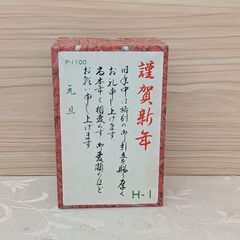 P-1100
謹賀新年
旧年中は格別の御引立を賜り厚く
お礼申し上げます
尚本年も相変わらず御愛顧のほど
お願い申し上げます
元旦
H-1